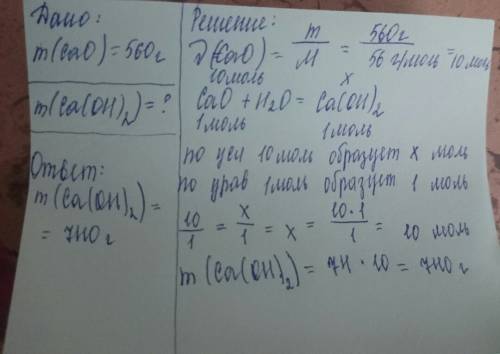 Дано:
m(CaO)=560г
m(Ca(OH)₂)=?
Ответ:
m(Ca(OH)₂)=
=740г
Решение:
ν(CaO)= m/M = 560г/56г/моль =10моль
10моль x
CaO + H₂O = Ca(OH)₂
1моль 1моль
по усл 10моль образует x моль
по урав 1моль образует 1 моль
10/1 = x/1 = x = 10·1/1 = 10 моль
m(Ca(OH)₂)= 74·10 = 740г